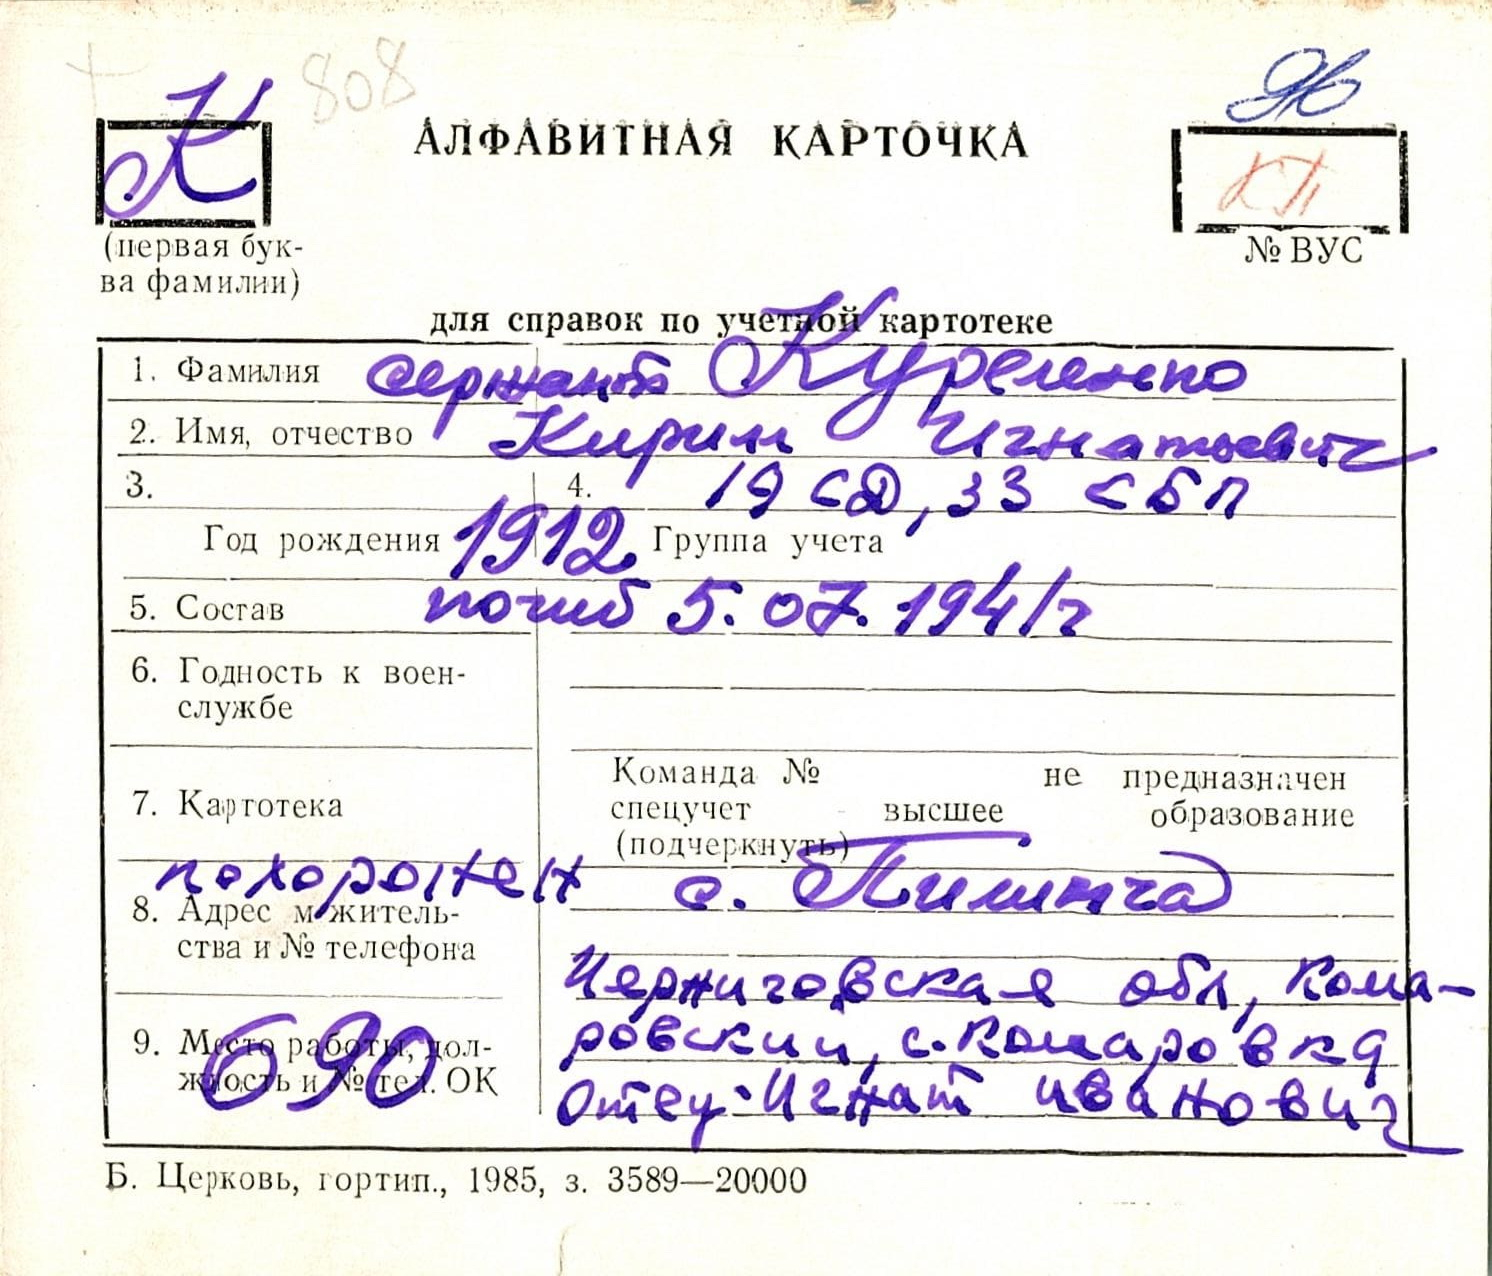 808
К
АЛФАВИТНАЯ КАРТОЧКА
КП
(первая бук-
ва фамилии)
№ ВУС
для справок по учетной картотеке
1. Фамилия сержант Куреленко
2. Имя, отчество Кирил Игнатьевич
3. 4. 19 СД, 33 СБП
Год рождения 1912 Группа учета
5. Состав погиб 5.07.1941г
6. Годность к воен-
службе
Команда № не предназначен
7. Картотека спецучет высшее образование
(подчеркнуть)
похоронен с.
8. Адрес м/житель-
ства и № телефона
Черниговская обл, Кома-
9. Место работы, дол- ровский, с. Комаровка
жность и № тел. ОК Отец: Игнат Иванович
690
Б. Церковь, гортип., 1985, з. 3589—20000